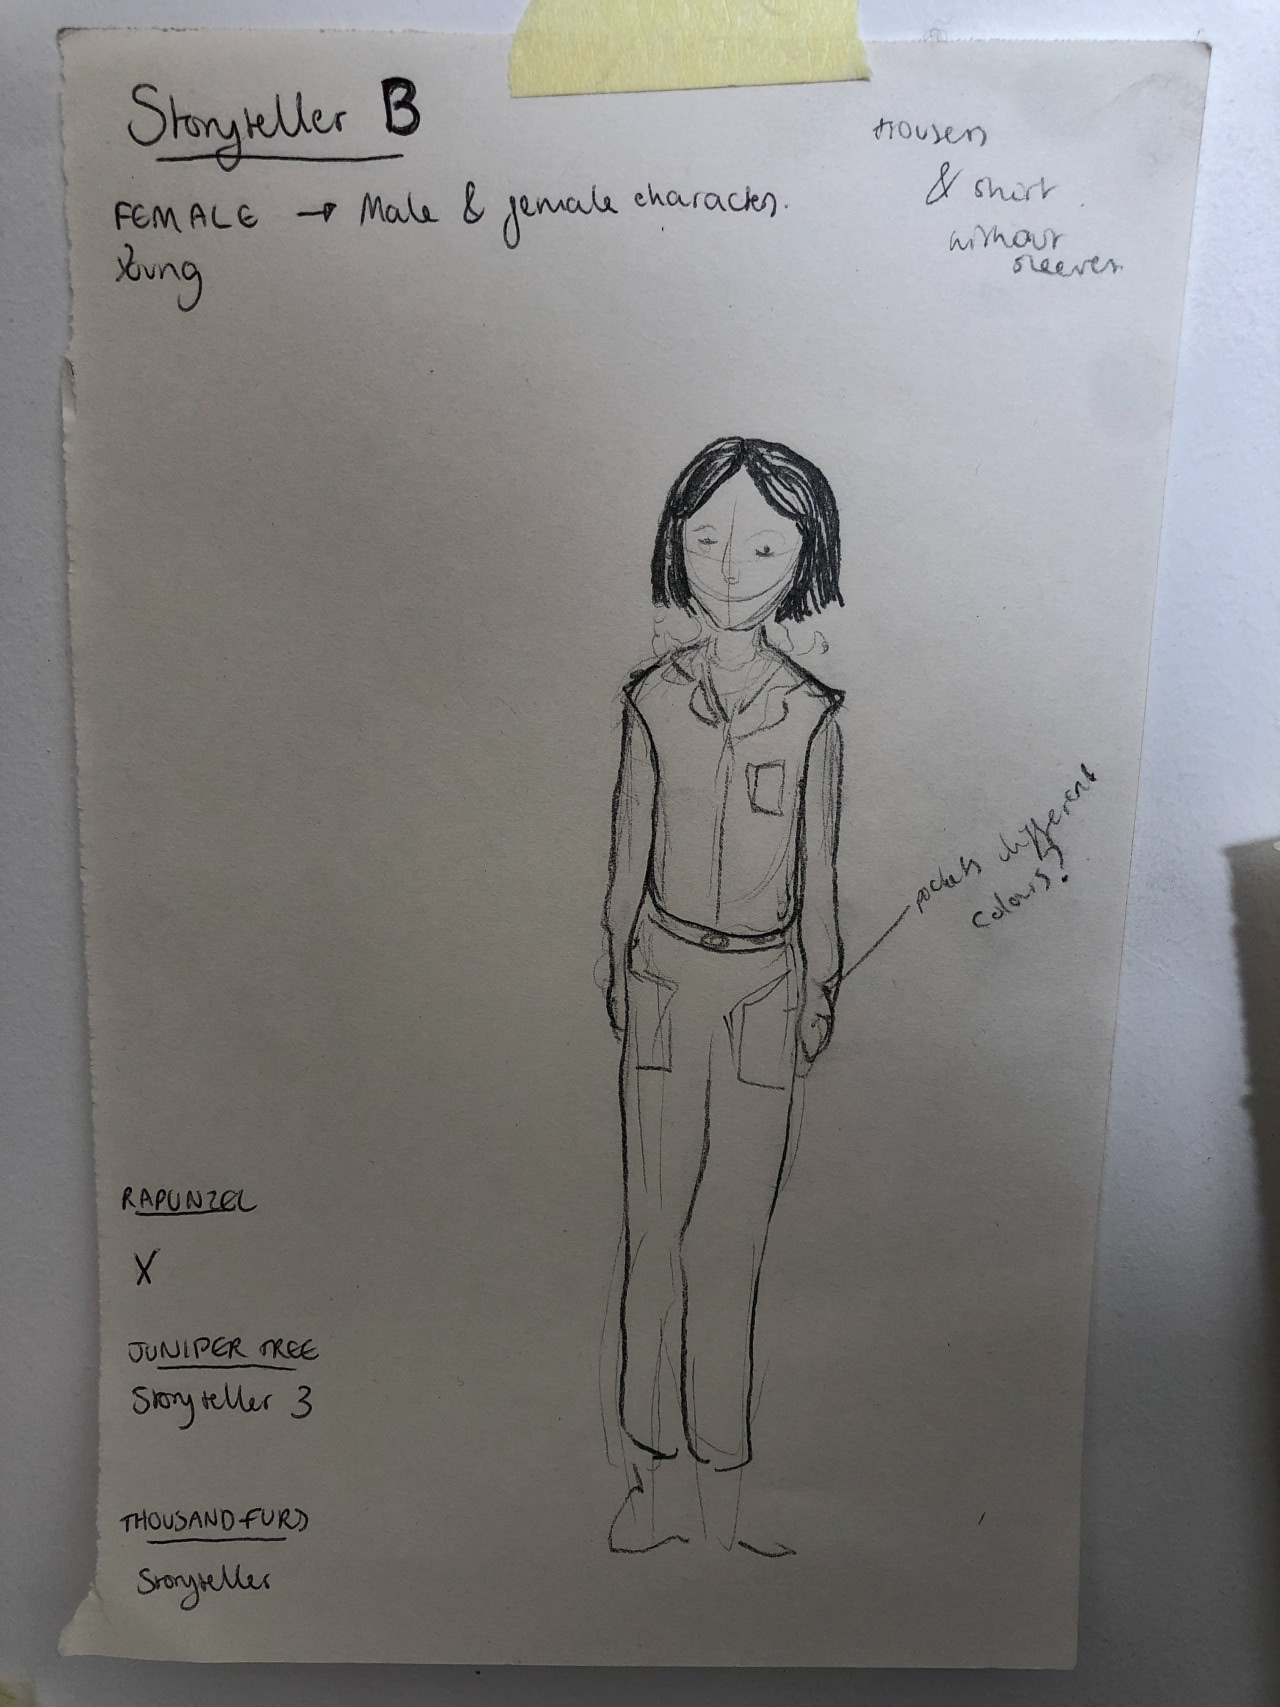 Storyteller B
FEMALE → Male & female characters.
Young
trousers
& shirt
without
sleeves
pockets different
colours?
RAPUNZEL
X
JUNIPER TREE
Storyteller 3
THOUSANDFURS
Storyteller